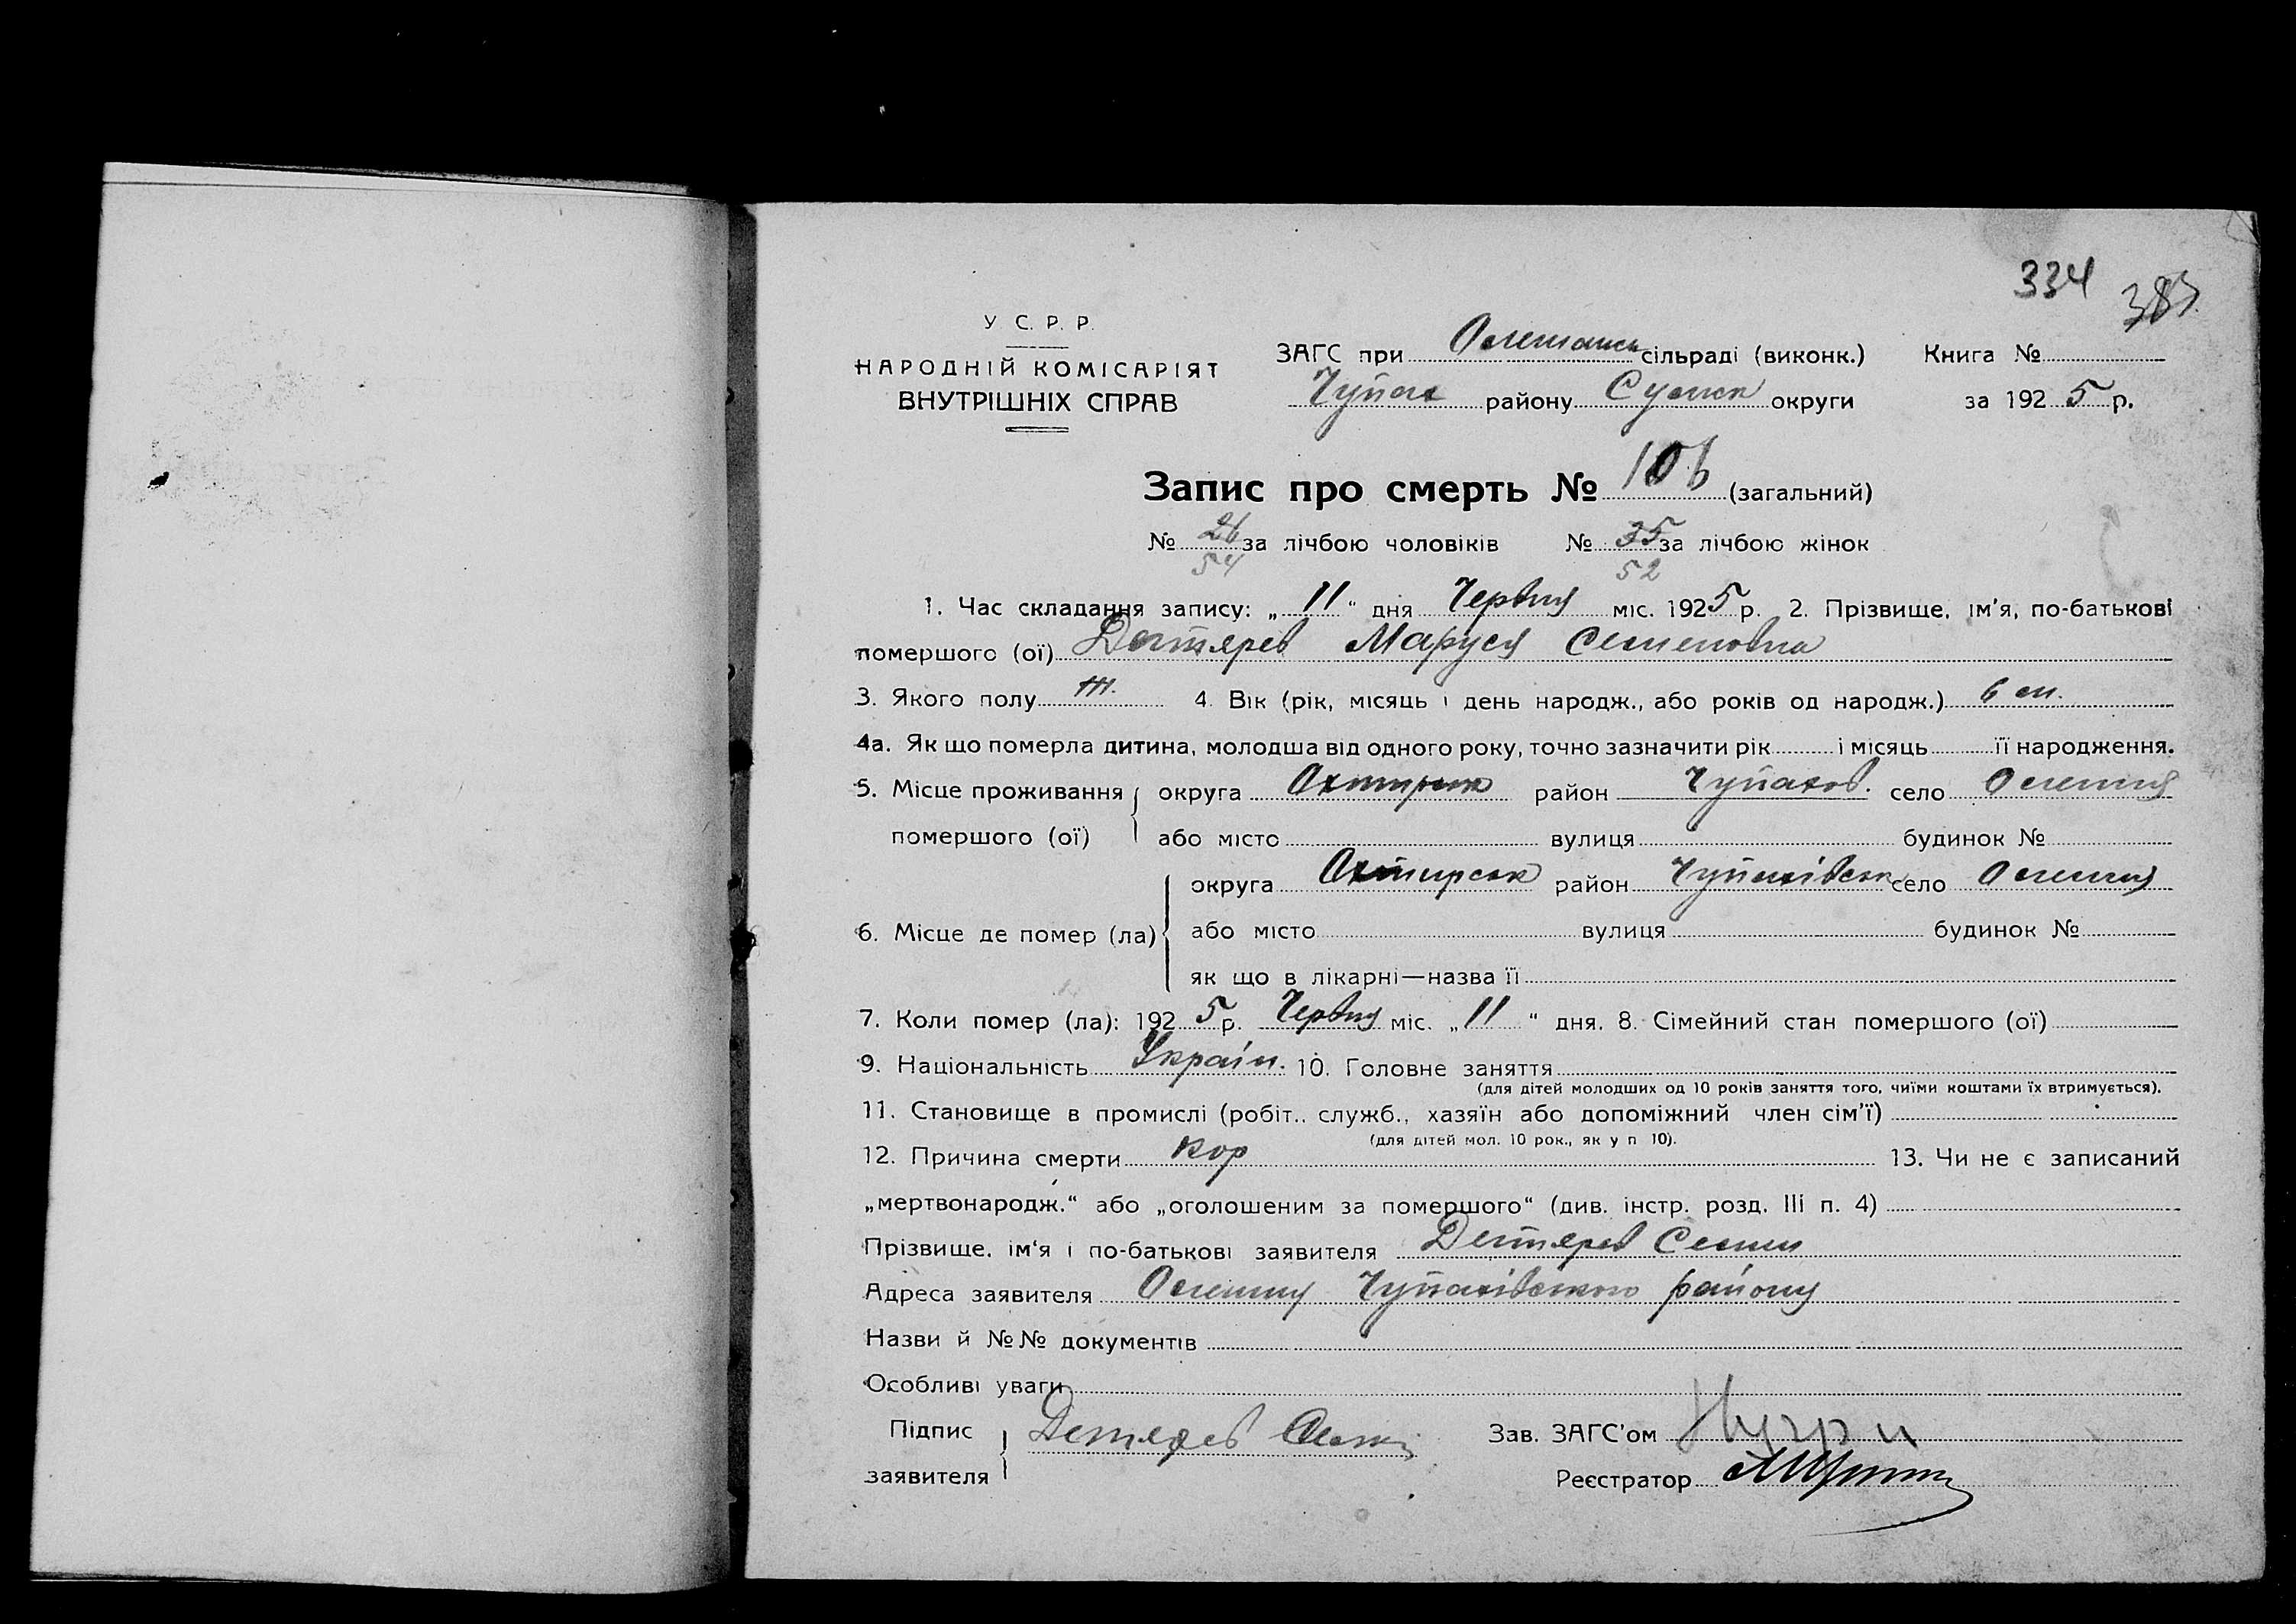 334
383
У С. Р. Р.
НАРОДНІЙ КОМІСАРІЯТ
ВНУТРІШНІХ СПРАВ
ЗАГС при Олешанськ сільраді (виконк.) Книга №
Чупах району Сумск округи за 1925 р.
Запис про смерть № 106 (загальний)
№ 26 за лічбою чоловіків № 35 за лічбою жінок
54 52
1. Час складання запису: „11“ дня Червня міс. 1925 р. 2. Прізвище, ім'я, по-батькові
помершого (ої) Дегтярев Маруся Семеновна
3. Якого полу ж. 4. Вік (рік, місяць і день народж., або років од народж.) 6 м.
4а. Як що померла дитина, молодша від одного року, точно зазначити рік і місяць її народження.
5. Місце проживання округа Охтирськ район Чупахов. село Олешня
помершого (ої) або місто вулиця будинок №
округа Охтирськ район Чупахівськ село Олешня
6. Місце де помер (ла) або місто вулиця будинок №
як що в лікарні—назва її
7. Коли помер (ла): 1925 р. Червня міс. „11“ дня. 8. Сімейний стан помершого (ої)
9. Національність Україн. 10. Головне заняття
(для дітей молодших од 10 років заняття того, чиїми коштами їх втримується).
11. Становище в промислі (робіт., служб., хазяїн або допоміжний член сім'ї)
(для дітей мол. 10 рок., як у п 10).
12. Причина смерти кор 13. Чи не є записаний
„мертвонародж.“ або „оголошеним за помершого“ (див. інстр. розд. III п. 4)
Прізвище, ім'я і по-батькові заявителя Дегтярев Семен
Адреса заявителя Олешня Чупахівського району
Назви й №№ документів
Особливі уваги
Підпис заявителя Детярев Зав. ЗАГС'ом
Реєстратор